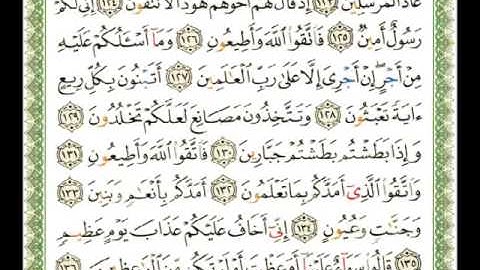 عَادٌ ٱلْمُرْسَلِينَ ١٢٣ إِذْ قَالَ لَهُمْ أَخُوهُمْ هُودٌ أَلَا تَتَّقُونَ ١٢٤ إِنِّى لَكُمْ
رَسُولٌ أَمِينٌ ١٢٥ فَٱتَّقُوا۟ ٱللَّهَ وَأَطِيعُونِ ١٢٦ وَمَآ أَسْـَٔلُكُمْ عَلَيْهِ
مِنْ أَجْرٍ ۖ إِنْ أَجْرِىَ إِلَّا عَلَىٰ رَبِّ ٱلْعَـٰلَمِينَ ١٢٧ أَتَبْنُونَ بِكُلِّ رِيعٍ
ءَايَةً تَعْبَثُونَ ١٢٨ وَتَتَّخِذُونَ مَصَانِعَ لَعَلَّكُمْ تَخْلُدُونَ ١٢٩
وَإِذَا بَطَشْتُم بَطَشْتُمْ جَبَّارِينَ ١٣٠ فَٱتَّقُوا۟ ٱللَّهَ وَأَطِيعُونِ ١٣١
وَٱتَّقُوا۟ ٱلَّذِىٓ أَمَدَّكُم بِمَا تَعْلَمُونَ ١٣٢ أَمَدَّكُم بِأَنْعَـٰمٍ وَبَنِينَ ١٣٣
وَجَنَّـٰتٍ وَعُيُونٍ ١٣٤ إِنِّىٓ أَخَافُ عَلَيْكُمْ عَذَابَ يَوْمٍ عَظِيمٍ
١٣٥ قَالُوا۟ سَوَآءٌ عَلَيْنَآ أَوَعَظْتَ أَمْ لَمْ تَكُن مِّنَ ٱلْوَٰعِظِينَ ١٣٦